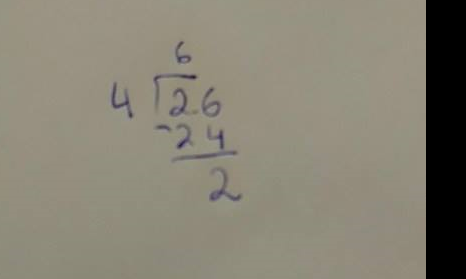 6
4 26
-24
2